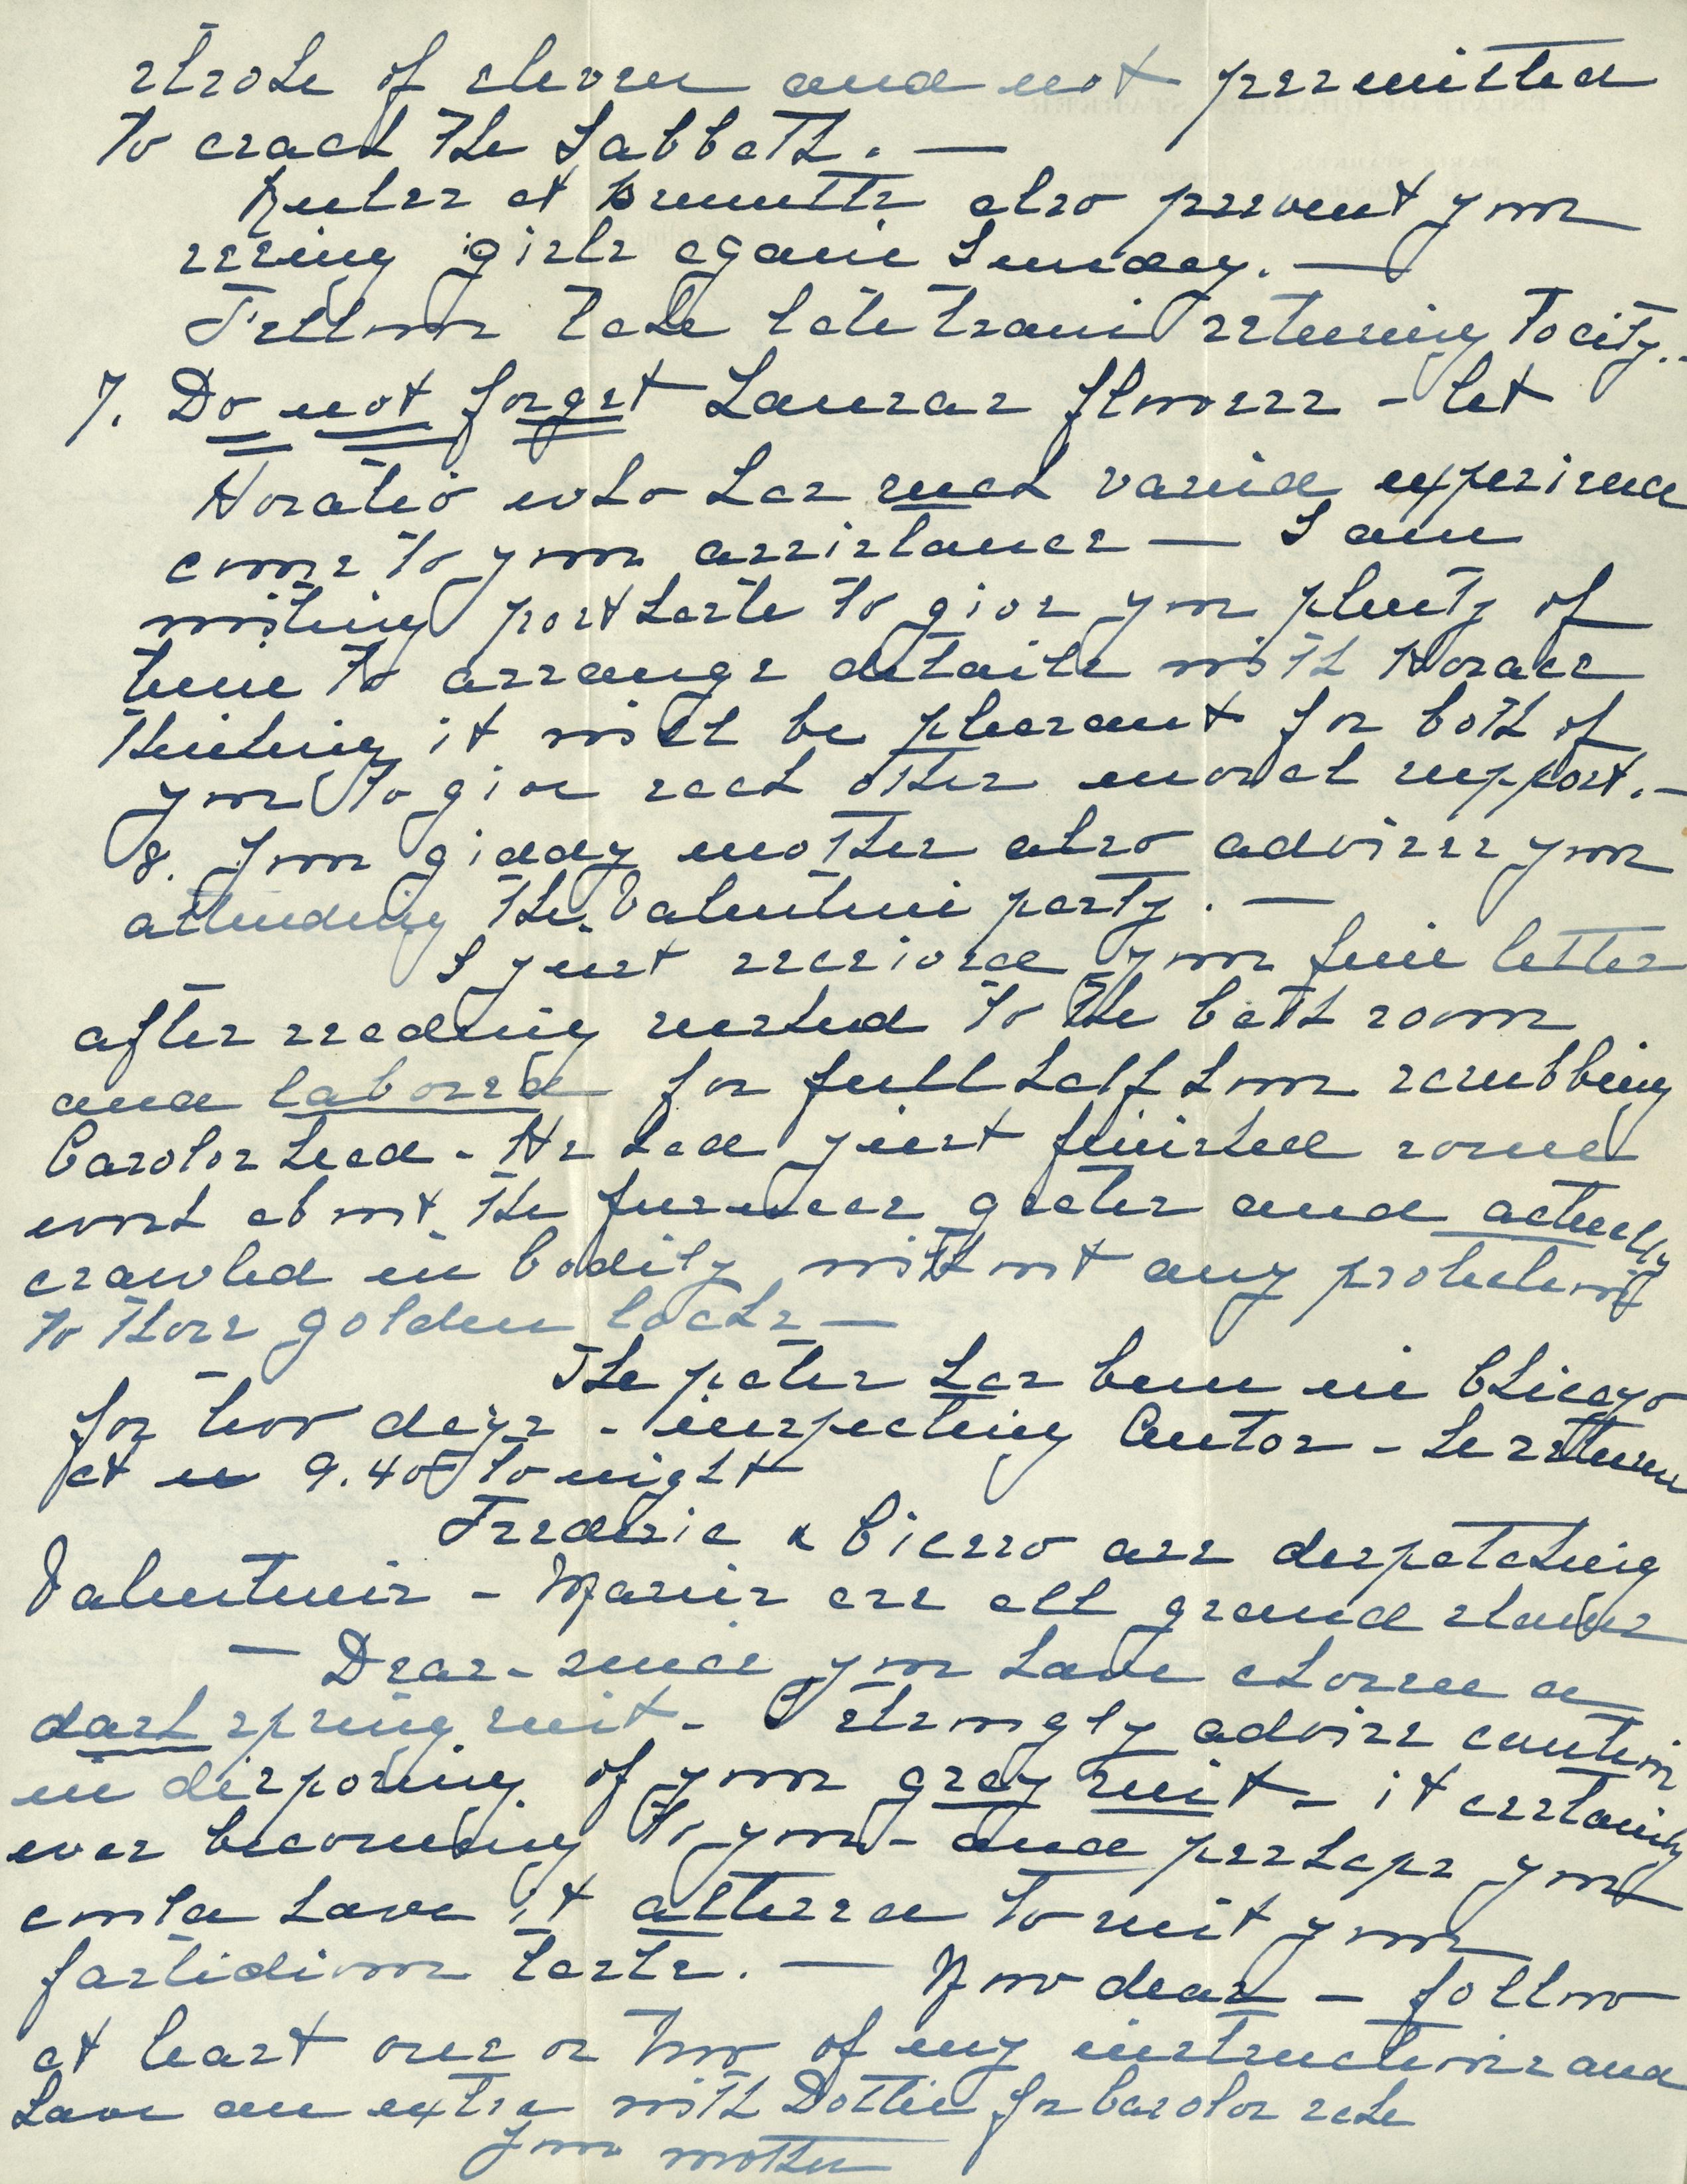 stroke of eleven and not permitted
to crack the Sabbath. —
Rules at Bennetts also prevent your
seeing girls again Sunday. —
Fellows take late train returning to city. -
7. Do not forget Lauras flowers - let
Horatio who has such varied experience
come to your assistance — I am
writing post haste to give you plenty of
time to arrange details with Horace
thinking it will be pleasant for both of
you to give each other moral support. -
8. Your giddy mother also advises your
attending the Valentine party. —
I just received your fine letter
after reading rushed to the bath room
and labored for full half hour scrubbing
Carolos head - He had just finished some
work about the furnace grates and actually
crawled in bodily without any protection
to those golden locks —
The pater has been in Chicago
for two days - inspecting Autos - he returns
at 9.40 tonight
Frederic & Cicero are despatching
Valentines - Maries are all grand slams
— Dear - since you have chosen a
dark spring suit - I strongly advise caution
in disposing of your gray suit - it certainly
was becoming to you - and perhaps you
could have it altered to suit your
fastidious taste. — Now dear - follow
at least one or two of my instructions and
have an extra with Dottie for Carolos sake
Your mother